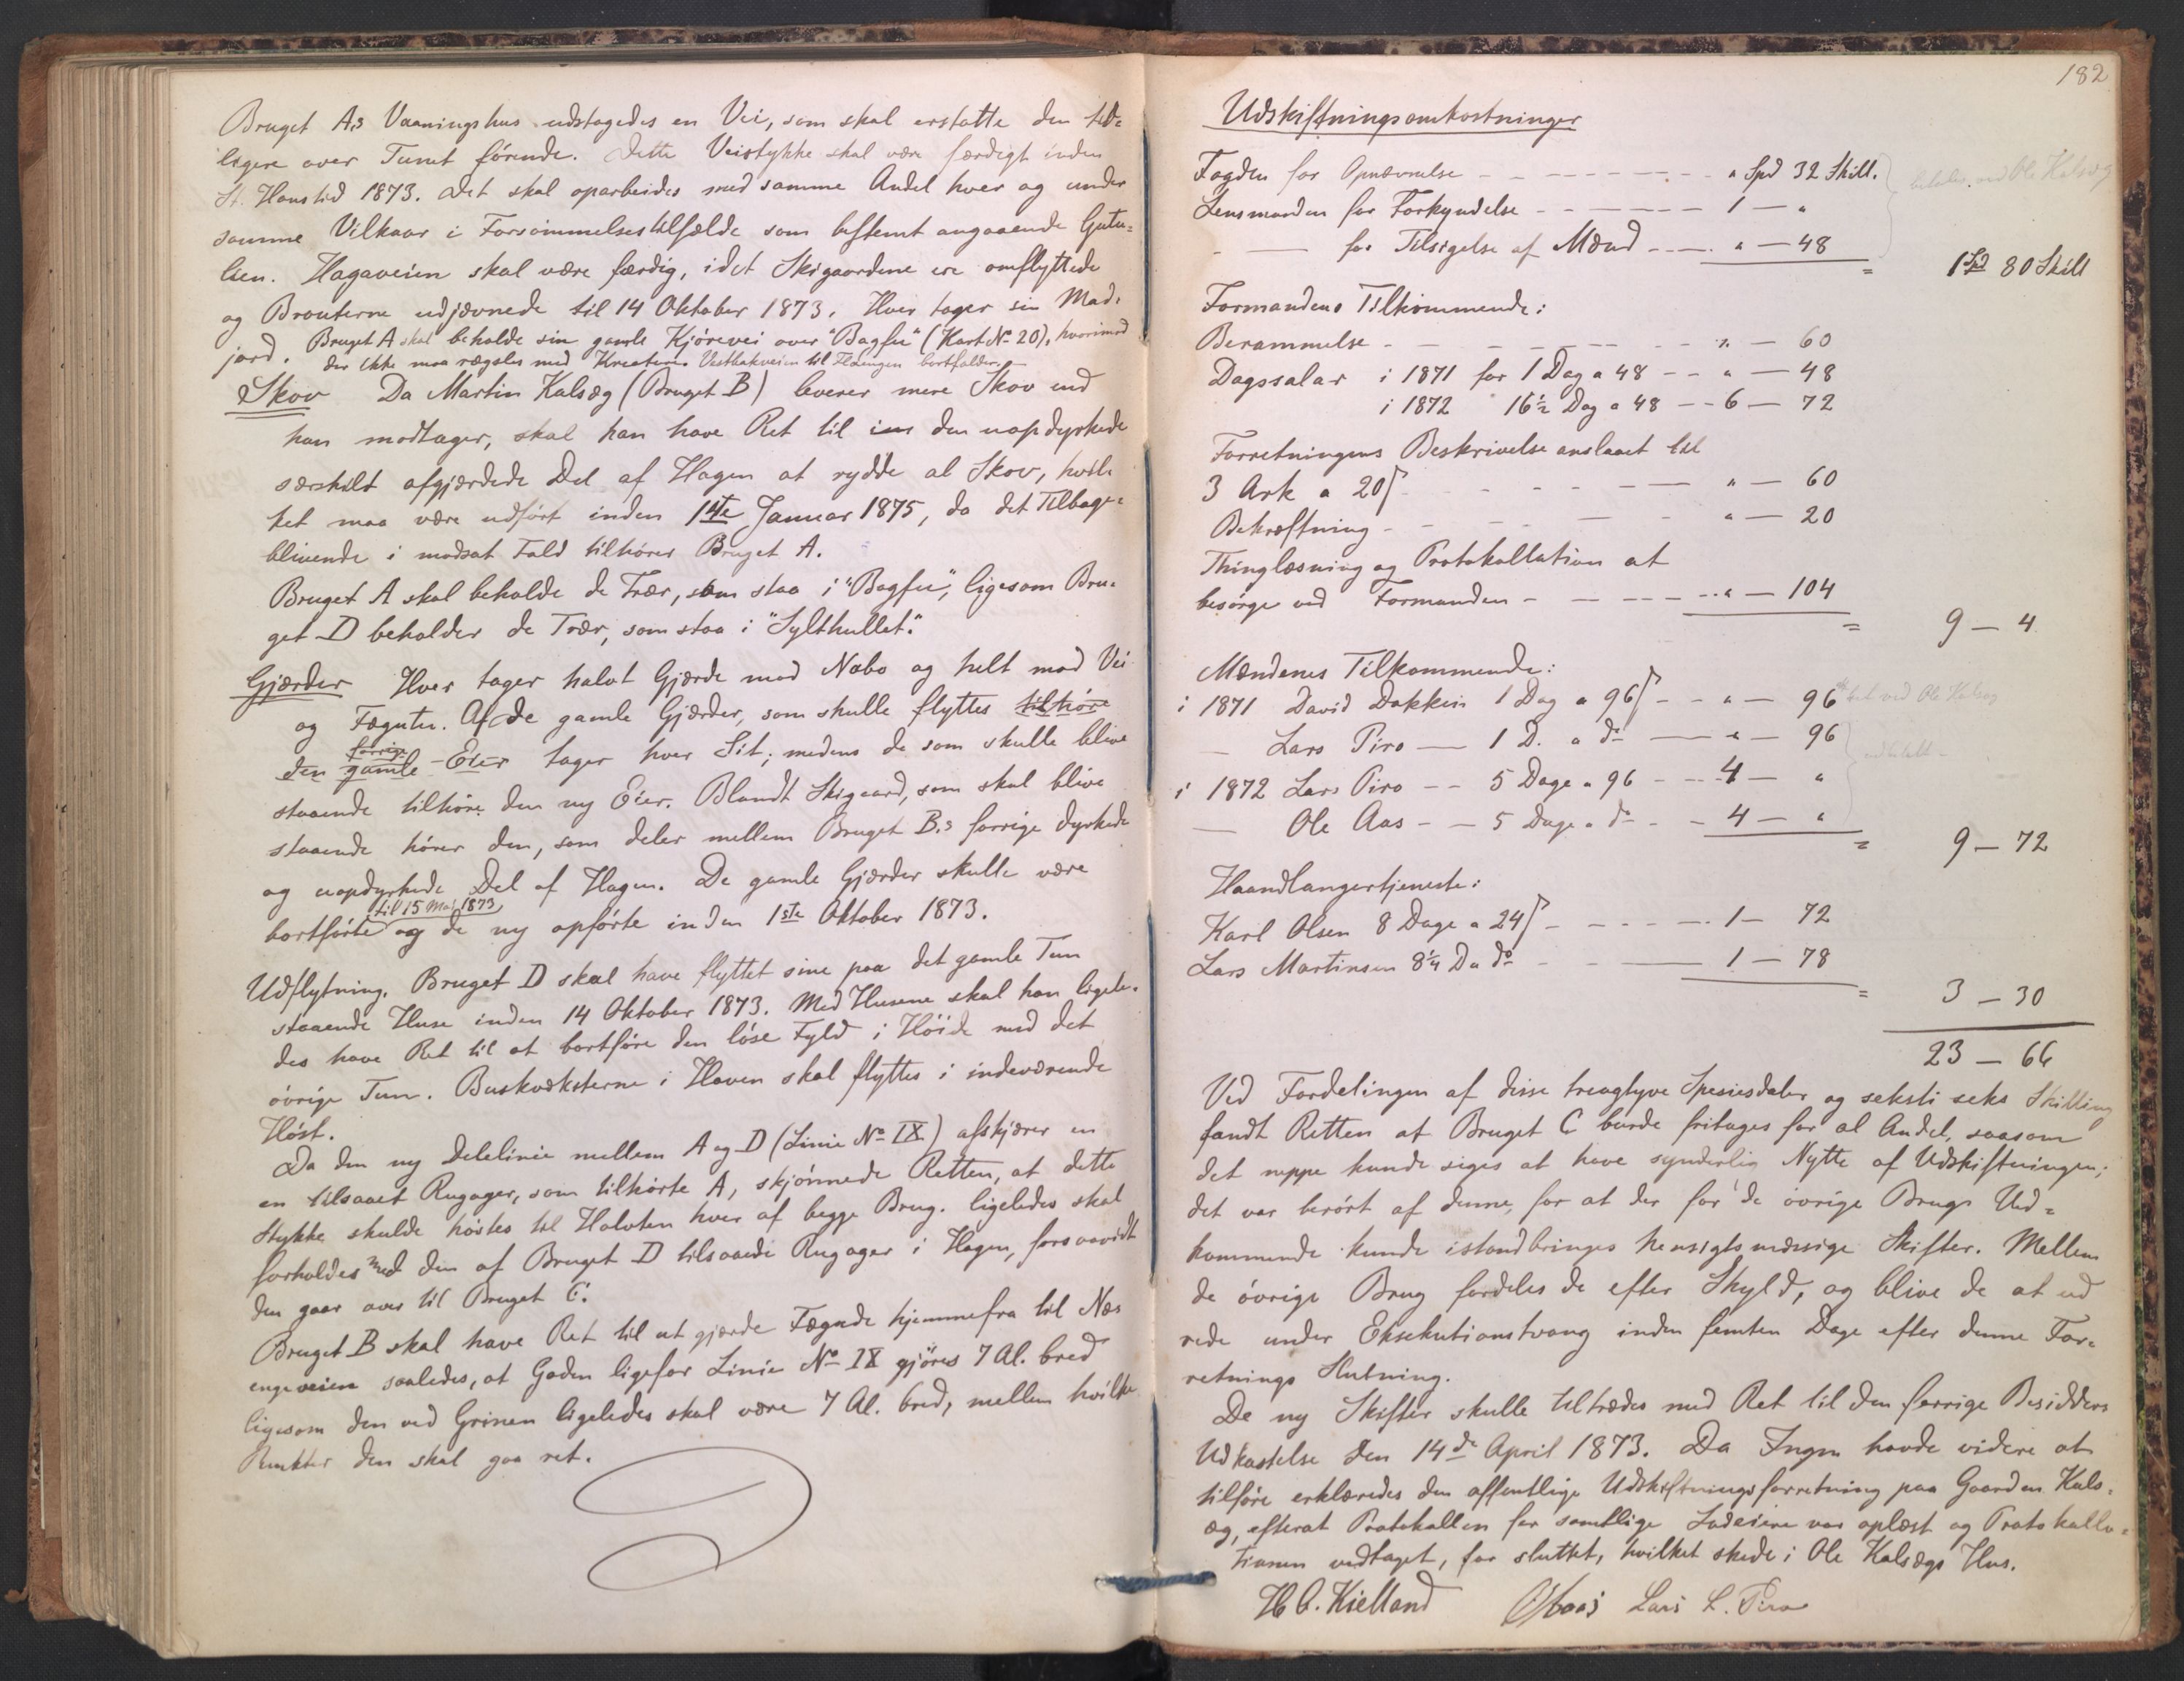 Bruget A.s Vaaningshus udstagedes en Vei, som skal erstatte den tid-
ligere over Tunet förende. Dette Veistykke skal være færdigt inden
St. Hanstid 1873. Det skal oparbeides med samme Andel hver og under
samme Vilkaar i Forsömmelsestilfælde som bestemt angaaende Gutu-
lien. Hagaveien skal være færdig, idet Skigaardene ere omflyttede
og Brouterne udjævnede til 14 Oktober 1873. Hver tager sin Mad-
jord. Bruget A skal beholde sin gamle Kjörevei over "Bagfu" (Kart No 20), hvorimod
der ikke maa rægstes med Kreature. Vestbakveien til Flængen bortfalder.
Skov Da Martin Kalsæg (Bruget B) leverer mere Skov end
han modtager, skal han have Ret til i den uopdyrkede
særskilt afgjærdede Del af Hagen at rydde al Skov, hvil-
ket maa være udfört inden 1ste Januar 1875, da det Tilbage-
blivende i modsat Fald tilhörer Bruget A.
Bruget A skal beholde de Trær, som staa i "Bagfu", ligesom Bru-
get D beholder de Trær, som staa i "Sylthullet".
Gjærder Hver tager halvt Gjærde mod Nabo og helt mod Vei
og Fægutu. Af de gamle Gjærder, som skulle flyttes tilhöre
den forrige gamle Eier tager hver Sit; medens de som skulle blive
staaende tilhöre den ny Eier. Blandt Skigaard, som skal blive
staaende hörer den, som deler mellem Bruget B.s forrige dyrkede
og uopdyrkede Del af Hagen. De gamle Gjærder skulle være
bortförte til 15 Mai 1873 og de ny opförte inden 1ste Oktober 1873.
Udflytning. Bruget D skal have flyttet sine paa det gamle Tun
staaende Huse inden 14 Oktober 1873. Med Husene skal han ligele-
des have Ret til at bortföre den löse Fyld i Höide med det
övrige Tun. Buskvæksterne i Haven skal flyttes i indeværende
Höst.
Da den ny Delelinie mellem A og D (Linie No IX) afskjærer en
en tilsaaet Rugager, som tilhörte A, skjönnede Retten, at dette
Stykke skulde höstes til Halvten hver af begge Brug. ligeledes skal
forholdes med den af Bruget D tilsaaede Rugager i Hagen, forsaavidt
den gaar over til Bruget C.
Bruget B skal have Ret til at gjærde Fægade hjemmefra til Næs
engeveien saaledes, at Gaden ligefor Linie No IX gjöres 7 Al. bred
ligesom den ved Grinen ligeledes skal være 7 Al. bred, mellem hvilke
Punkter den skal gaa ret.
182
Udskiftningsomkostninger
Fogden for Opnævnelse - - - - " Spd 32 Skill.
betales ved Ole Kalsæg
Lensmanden for Forkyndelse - - - - 1 — "
- — for Tilsigelse af Mænd - - - " — 48
= 1 Spd 80 Skill
Formandens Tilkommende:
Berammelse - - - - " — 60
Dagssalar i 1871 for 1 Dag a 48 - - " — 48
i 1872 16½ Dag a 48 - - 6 — 72
Forretningens Beskrivelse anslaaet til
3 Ark a 20 ß - - - - " — 60
Bekræftning - - - - " — 20
Thinglæsning og Protokollation at
besörge ved Formanden - - - - " — 104
= 9 — 4
Mændenes Tilkommende:
i 1871 David Dokken 1 Dag a 96 ß - - " — 96
bet. ved Ole Kalsæg
— Lars Piro — 1 D. a do — " — 96
i 1872 Lars Piro - - 5 Dage a 96 - - 4 — "
udbetalt
— Ole Aas - - 5 Dage a do - - 4 — "
= 9 — 72
Haandlangertjeneste:
Karl Olsen 8 Dage a 24 ß - - - - 1 — 72
Lars Martinsen 8¼ D a do - - — 1 — 78
= 3 — 30
23 — 66
Ved Fordelingen af disse treogtyve Spesiesdaler og seksti seks Skilling
fandt Retten at Bruget C burde fritages for al Andel, saasom
det neppe kunde siges at have synderlig Nytte af Udskiftningen;
det var berört af denne, for at der for de övrige Brugs Ved-
kommende kunde istandbringes hensigtsmæssige Skifter. Mellem
de övrige Brug fordeles de efter Skyld, og blive de at ud
rede under Eksekutionstvang inden femten Dage efter denne For-
retnings Slutning.
De ny Skifter skulle tiltrædes med Ret til den forrige Besidders
Udkastelse den 14de April 1873. Da Ingen havde videre at
tilföre erklæredes den offentlige Udskiftningsforretning paa Gaarden Kals-
æg, efterat Protokollen for samtlige Lodeiere var oplæst og Protokolla-
tionen vedtaget, for sluttet, hvilket skede i Ole Kalsægs Hus.
H C. Kielland O Aas Lars L. Piro